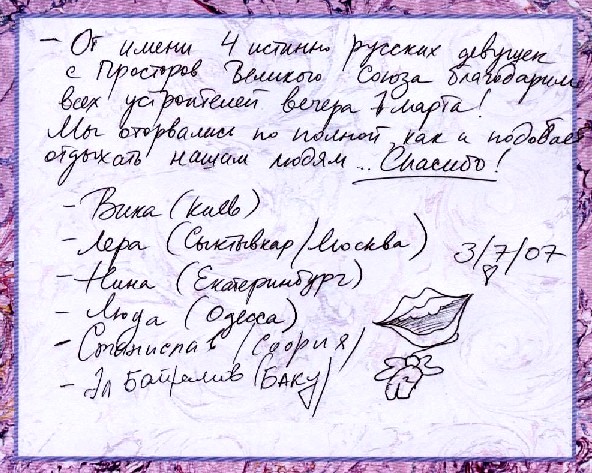 - От имени 4 истинно русских девушек
с Просторов Великого Союза благодарим
всех устроителей вечера 7 марта!
Мы оторвались по полной, как и подобает
отдыхать нашим людям... Спасибо!
- Вика (Киев)
- Лера (Сыктывкар/Москва)
3/7/07
- Нина (Екатеринбург)
- Люда (Одесса)
- (София)
- Эл (Баку)